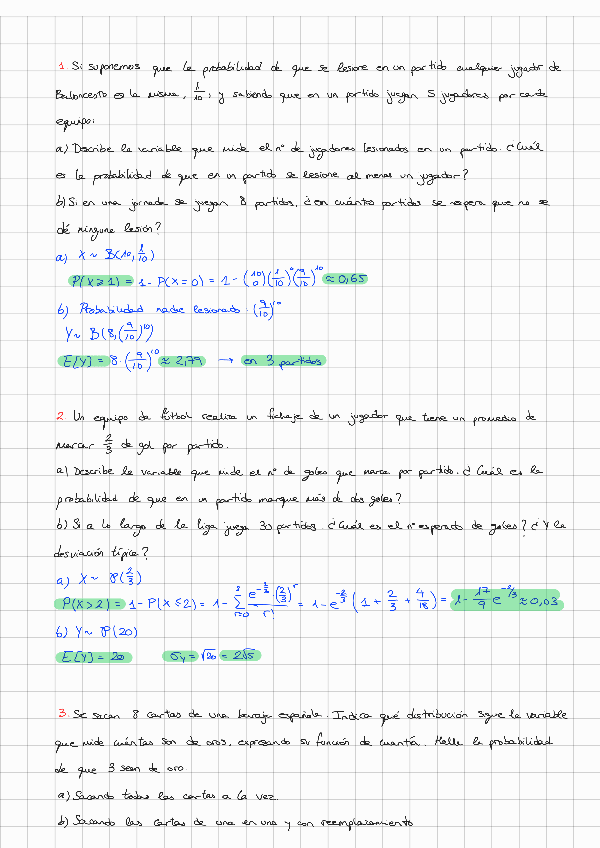 1. Si suponemos que la probabilidad de que se lesione en un partido cualquier jugador de
Baloncesto es la misma, 1/10, y sabiendo que en un partido juegan 5 jugadores por cada
equipo:
a) Describe la variable que mide el nº de jugadores lesionados en un partido. ¿Cuál
es la probabilidad de que en un partido se lesione al menos un jugador?
b) Si en una jornada se juegan 8 partidos, ¿en cuántos partidos se espera que no se
dé ninguna lesión?
a) X ~ B(10, 1/10)
P(X ≥ 1) = 1 - P(X = 0) = 1 - (10 0)(1/10)^0 (9/10)^10 ≈ 0,65
b) Probabilidad nadie lesionado: (9/10)^10
Y ~ B(8, (9/10)^10)
E[Y] = 8 · (9/10)^10 ≈ 2,79 → en 3 partidos
2. Un equipo de fútbol realiza un fichaje de un jugador que tiene un promedio de
marcar 2/3 de gol por partido.
a) Describe la variable que mide el nº de goles que marca por partido. ¿Cuál es la
probabilidad de que en un partido marque más de dos goles?
b) Si a lo largo de la liga juega 30 partidos. ¿Cuál es el nº esperado de goles? ¿Y la
desviación típica?
a) X ~ P(2/3)
P(X > 2) = 1 - P(X ≤ 2) = 1 - Σ r=0 2 e^-2/3 · (2/3)^r / r! = 1 - e^-2/3 (1 + 2/3 + 4/18) = 1 - 17/9 e^-2/3 ≈ 0,03
b) Y ~ P(20)
E[Y] = 20 σY = √20 = 2√5
3. Se sacan 8 cartas de una baraja española. Indica qué distribución sigue la variable
que mide cuántas son de oros, expresando su función de cuantía. Halla la probabilidad
de que 3 sean de oro
a) Sacando todas las cartas a la vez
b) Sacando las cartas de una en una y con reemplazamiento